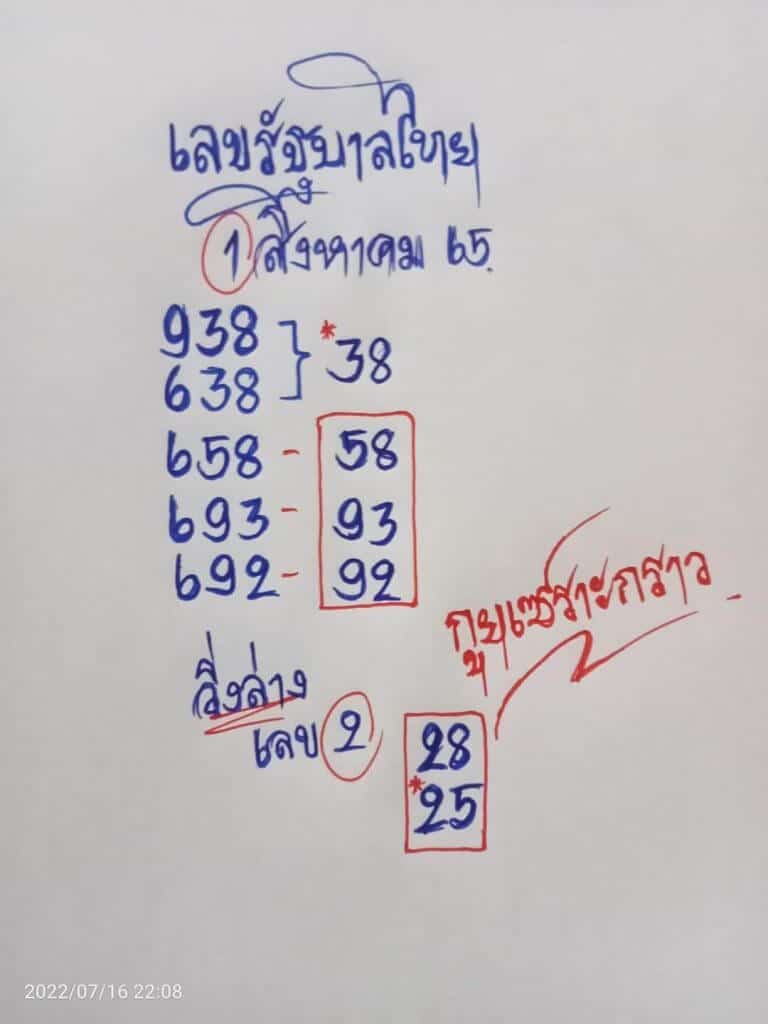 เลขรัฐบาลไทย
1 สิงหาคม 65.
938
638 } *38
658 - 58
693 - 93
692 - 92
วิ่งล่าง
เลข 2
28
*25
2022/07/16 22:08